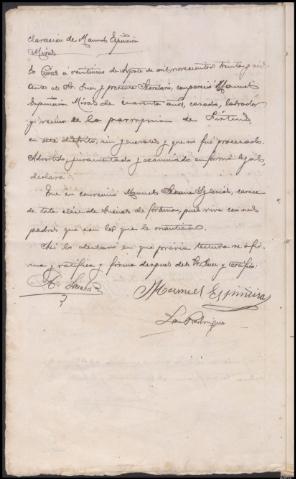 claracion de Manuel Espiñeira
Miras
En a veintiseis de Agosto de mil novecientos treinta y
ante el Sr. Juez y presente Secretario, comparecio Manuel
Espiñeira Miras de cuarenta años, casado, labrador
y vecino de la parroquia de
en este distrito, sin generales y que no fue procesado.
Advertido, juramentado y examinado en forma legal,
declara:
Que su convecino Manuel Iglesias, carece
de toda clase de bienes de fortuna, pues vive con sus
padres que son los que le mantienen.
Asi lo declara en que previa lectura se afir-
ma y ratifica y firma despues del Sr. Juez y certifico.
Manuel Espiñeira
Rodriguez